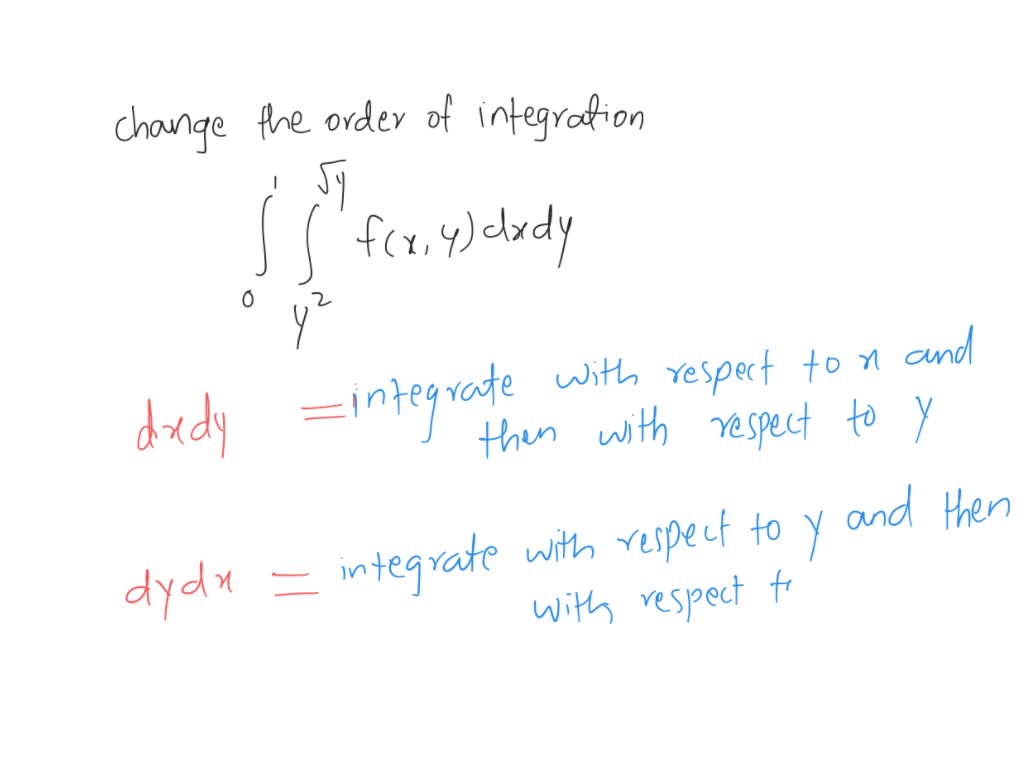 change the order of integration
∫₀¹ ∫_{y²}^{√y} f(x,y) dx dy
dxdy = integrate with respect to x and
then with respect to y
dydx = integrate with respect to y and then
with respect t